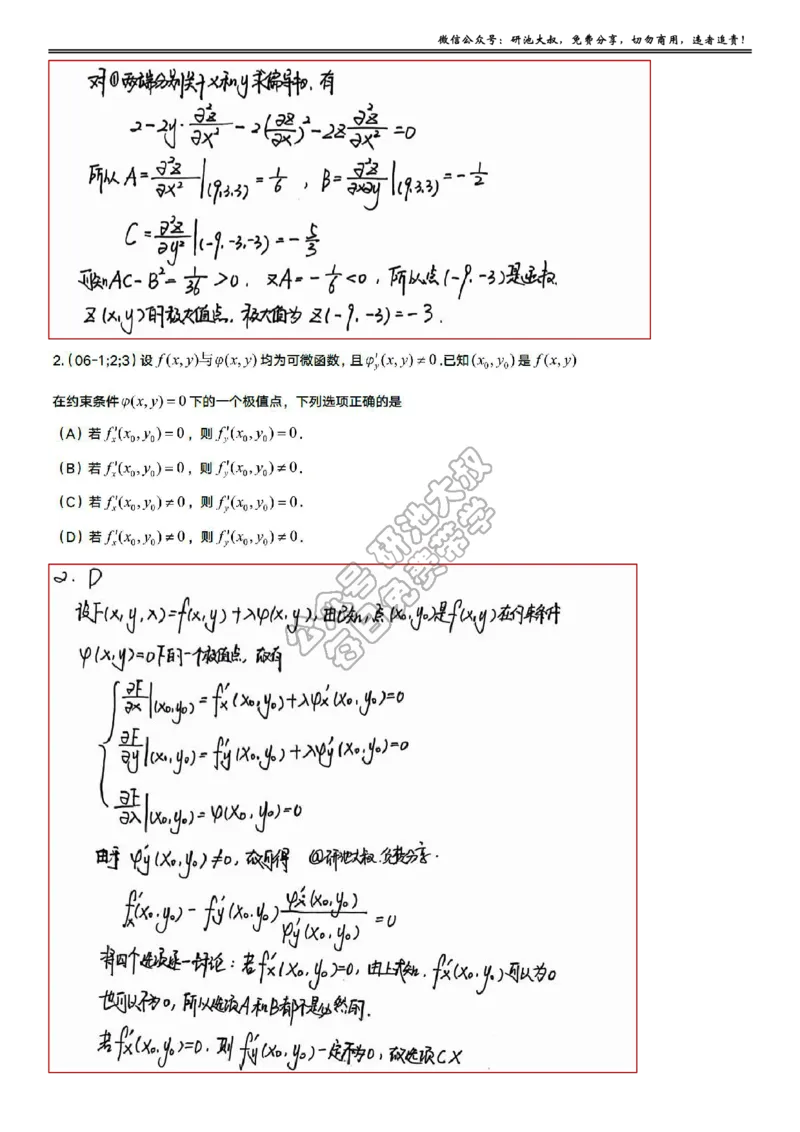 微信公众号：研池大叔，免费分享，切勿商用，违者追责！
对①两端分别关于x和y求偏导数，有
2-2y·∂²z/∂x²-2(∂z/∂x)²-2z∂²z/∂x²=0
所以A=∂²z/∂x²|(9,3,3)=1/6，B=∂²z/∂x∂y|(9,3,3)=-1/2
C=∂²z/∂y²|(-9,-3,-3)=-5/3
可知AC-B²=1/36>0，又A=-1/6<0，所以点(-9,-3)是函数
z(x,y)的极大值点，极大值为z(-9,-3)=-3.
2.(06-1;2;3)设f(x,y)与φ(x,y)均为可微函数，且φ'y(x,y)≠0.已知(x₀,y₀)是f(x,y)
在约束条件φ(x,y)=0下的一个极值点，下列选项正确的是
（A）若f'x(x₀,y₀)=0，则f'y(x₀,y₀)=0.
（B）若f'x(x₀,y₀)=0，则f'y(x₀,y₀)≠0.
（C）若f'x(x₀,y₀)≠0，则f'y(x₀,y₀)=0.
（D）若f'x(x₀,y₀)≠0，则f'y(x₀,y₀)≠0.
公众号 研池大叔
每日免费带学
2. D
设F(x,y,λ)=f(x,y)+λφ(x,y)，由已知，点(x₀,y₀)是f(x,y)在约束条件
φ(x,y)=0下的一个极值点，故有
∂F/∂x|(x₀,y₀)=f'x(x₀,y₀)+λφ'x(x₀,y₀)=0
∂F/∂y|(x₀,y₀)=f'y(x₀,y₀)+λφ'y(x₀,y₀)=0
∂F/∂λ|(x₀,y₀)=φ(x₀,y₀)=0
由于φ'y(x₀,y₀)≠0，故可得 @研池大叔.免费分享.
f'x(x₀,y₀)-f'y(x₀,y₀)φ'x(x₀,y₀)/φ'y(x₀,y₀)=0
将四个选项逐一讨论：若f'x(x₀,y₀)=0，由上式知，f'x(x₀,y₀)可以为0
也可以不为0，所以选项A和B都不是必然的.
若f'x(x₀,y₀)=0，则f'y(x₀,y₀)一定不为0，故选项C X